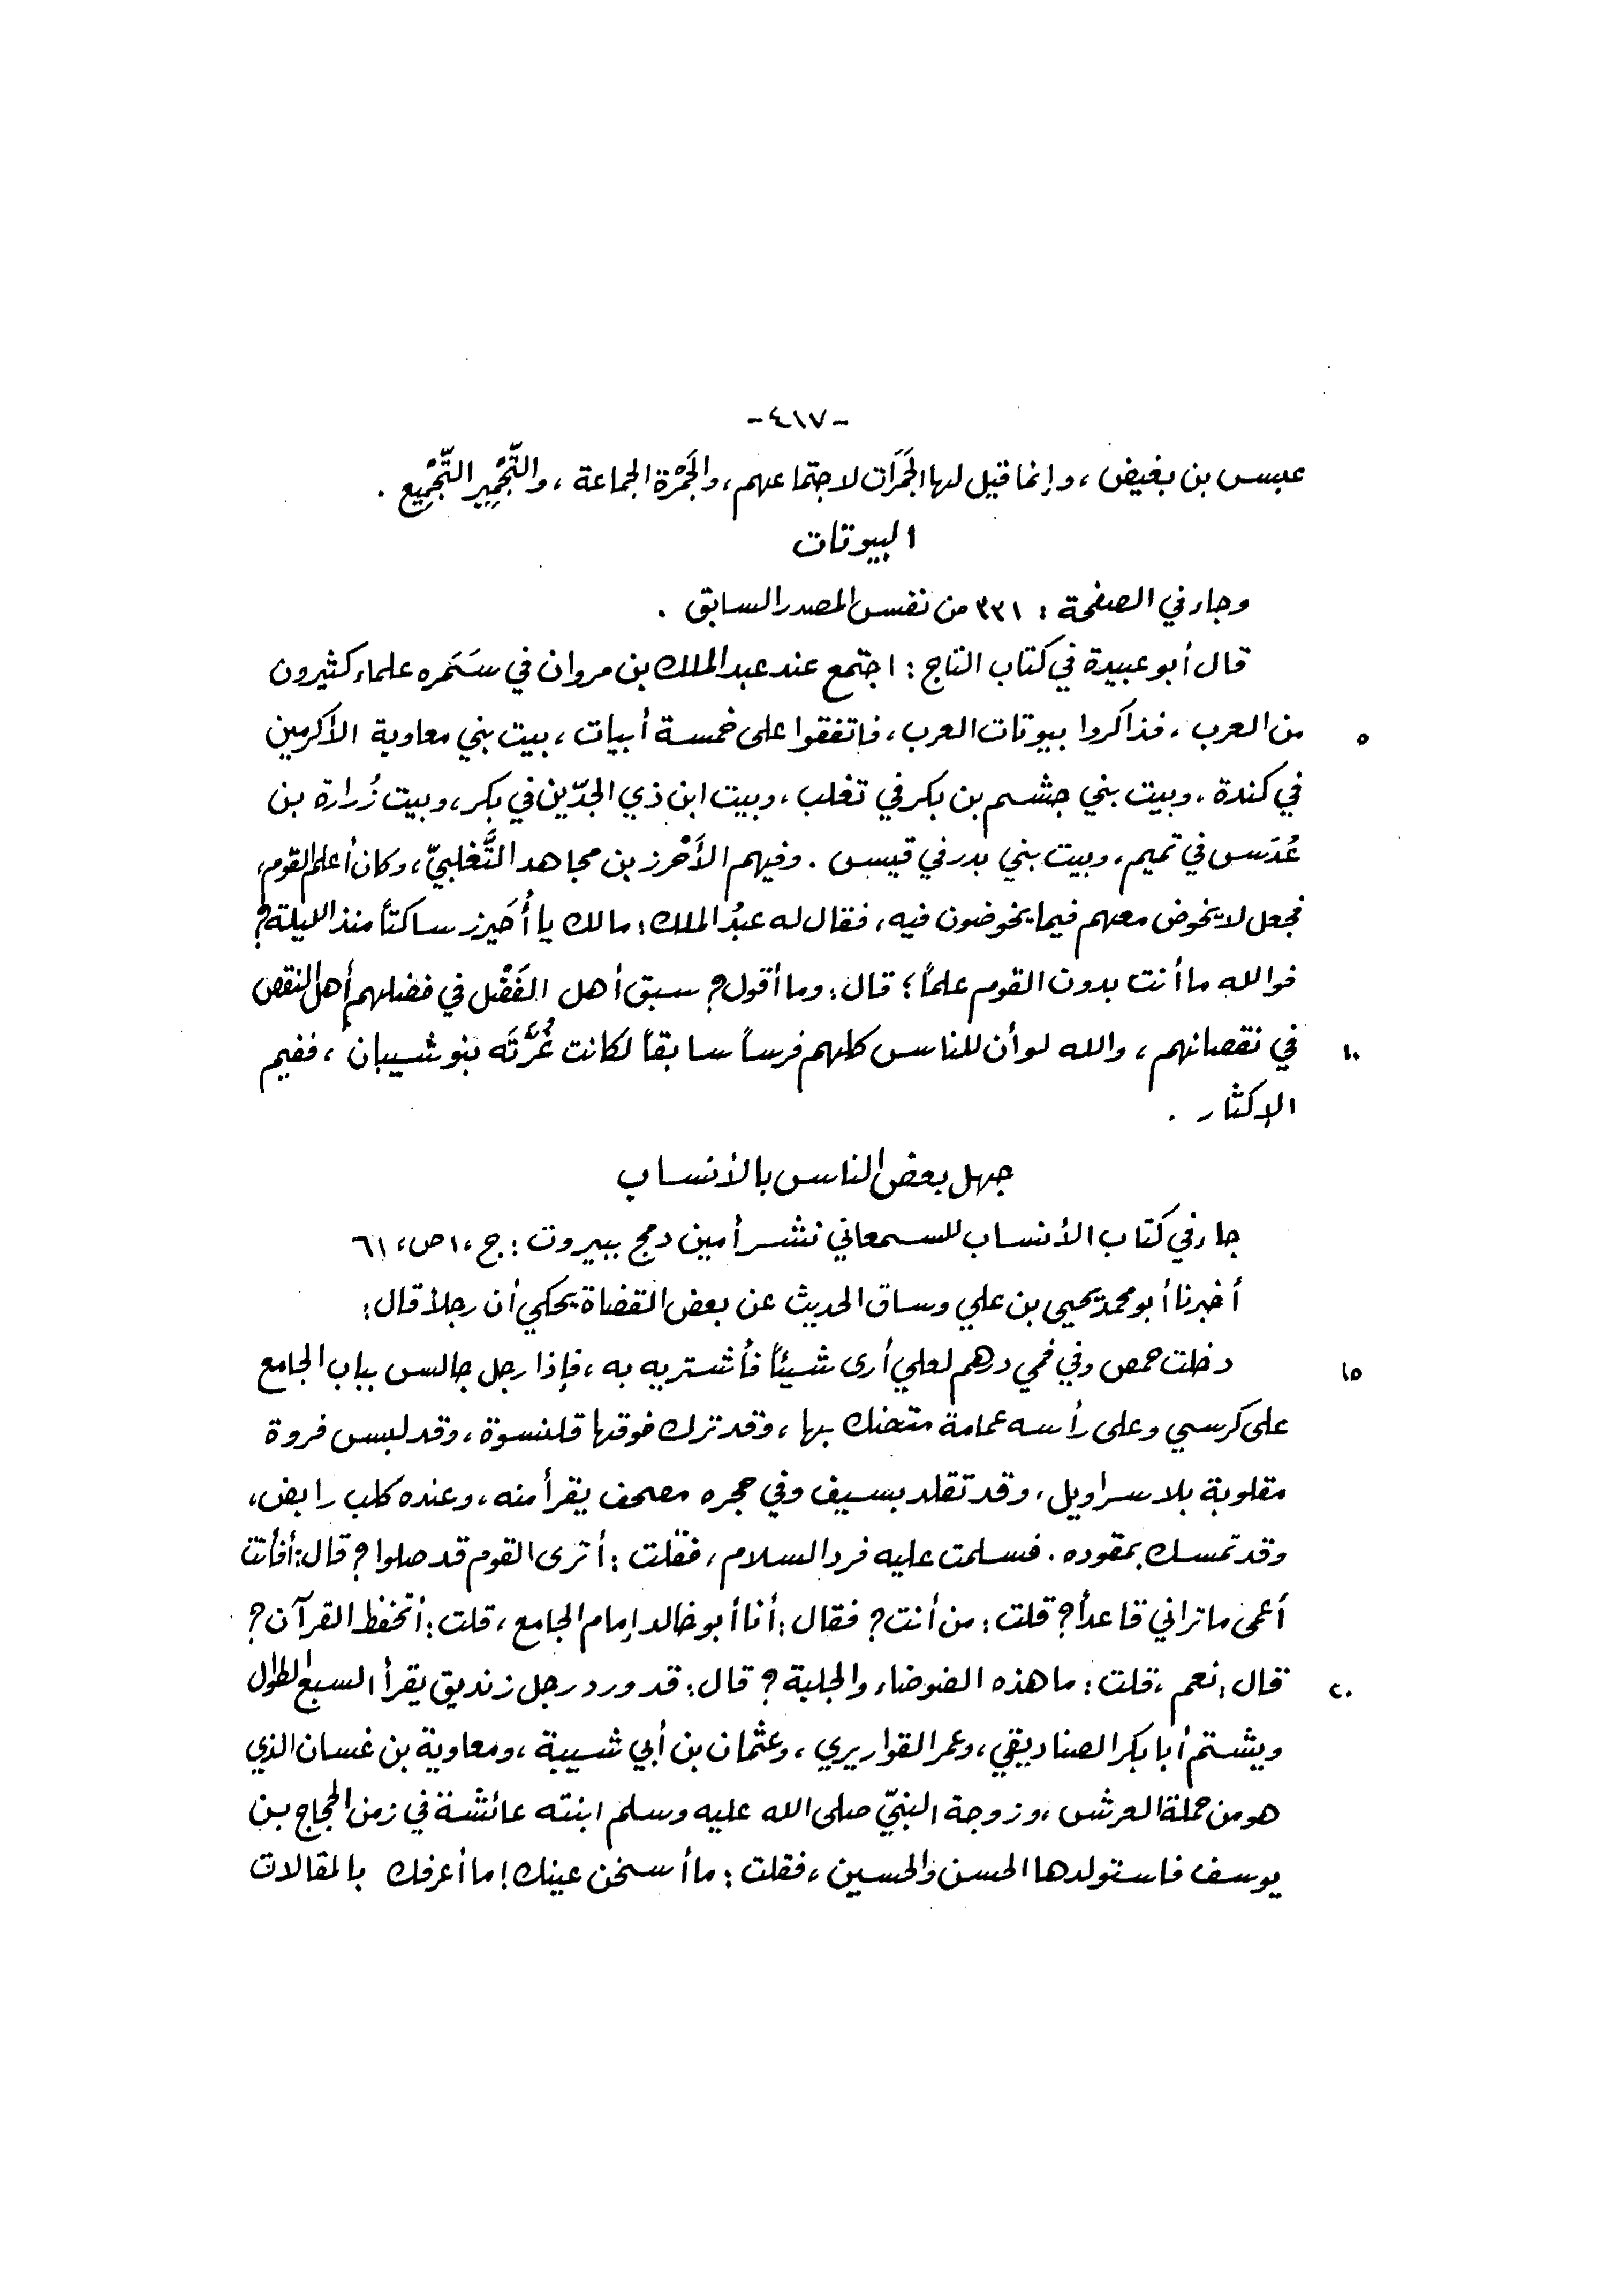 -٤١٧-
عبس بن بغيض ، وإنما قيل لها الجَمَرَات لاجتماعهم ، والجَمْرَة الجماعة ، والتَّجْمِير التَّجْمِيع .
البيوتات
وجاء في الصفحة : ٣٣١ من نفس المصدر السابق .
قال أبو عبيدة في كتاب التاج : اجتمع عند عبد الملك بن مروان في سَمَره علماء كثيرون
٥ من العرب ، فذاكروا بيوتات العرب ، فاتفقوا على خمسة أبيات ، بيت بني معاوية الأكرمين
في كندة ، وبيت بني جشم بن بكر في تغلب ، وبيت ابن ذي الجدّين في بكر ، وبيت زُرارة بن
عُدَس في تميم ، وبيت بني بدر في قيس . وفيهم الأَحْرز بن مجاهد التَّغلبيّ ، وكان أعلم القوم ،
فجعل لا يخوض معهم فيما يخوضون فيه ، فقال له عبدُ الملك : مالك يا أُحَيرز ساكتاً منذ الليلة ؟
فوالله ما أنت بدون القوم علماً ؛ قال : وما أقول ؟ سبق أهل الفَضْل في فضلهم أهل النقص
١٠ في نقصانهم ، والله لو أن للناس كلهم فرساً سابقاً لكانت غُرَّتَه بنو شيبان ، ففيم
الإكثار .
جهل بعض الناس بالأنساب
جاء في كتاب الأنساب للسمعاني نشر أمين دمج ببيروت : ج ، ١ ص ، ٦١
أخبرنا أبو محمد يحيى بن علي وساق الحديث عن بعض القضاة يحكي أن رجلاً قال :
١٥ دخلت حمص وفي فمي درهم لعلي أرى شيئاً فأشتريه به ، فإذا رجل جالس بباب الجامع
على كرسي وعلى رأسه عمامة متحنك بها ، وقد ترك فوقها قلنسوة ، وقد لبس فروة
مقلوبة بلا سراويل ، وقد تقلد بسيف وفي حجره مصحف يقرأ منه ، وعنده كلب رابض ،
وقد تمسك بمقوده . فسلمت عليه فرد السلام ، فقلت : أترى القوم قد صلوا ؟ قال : أفأنت
أعمى ما تراني قاعداً ؟ قلت : من أنت ؟ فقال : أنا أبو خالد إمام الجامع ، قلت : أتحفظ القرآن ؟
٢٠ قال : نعم ، قلت : ما هذه الضوضاء والجلبة ؟ قال : قد ورد رجل زنديق يقرأ السبع الطوال
ويشتم أبا بكر الصناديقي ، وعمر القواريري ، وعثمان بن أبي شيبة ، ومعاوية بن غسان الذي
هو من حملة العرش ، وزوجة النبيّ صلى الله عليه وسلم ابنته عائشة في زمن الحجاج بن
يوسف فاستولدها الحسن والحسين ، فقلت : ما أسخن عينك ! ما أعرفك بالمقالات